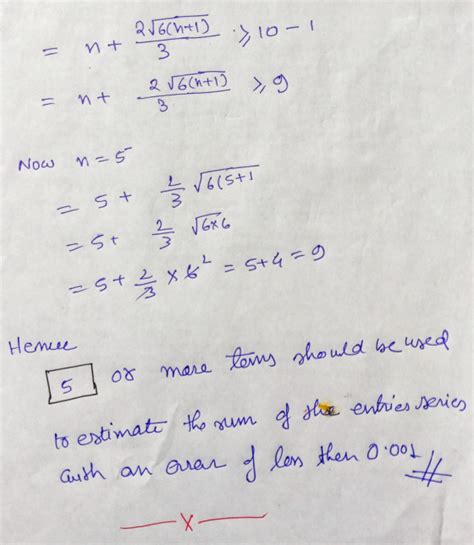 = n + 2√6(n+1) / 3 ≥ 10 - 1
= n + 2√6(n+1) / 3 ≥ 9
Now n = 5
= 5 + 2/3 √6(5+1
= 5 + 2/3 √6×6
= 5 + 2/3 × 6 2 = 5 + 4 = 9
Hence
5 or more terms should be used
to estimate the sum of the entries series
with an error of less then 0.001 //
x